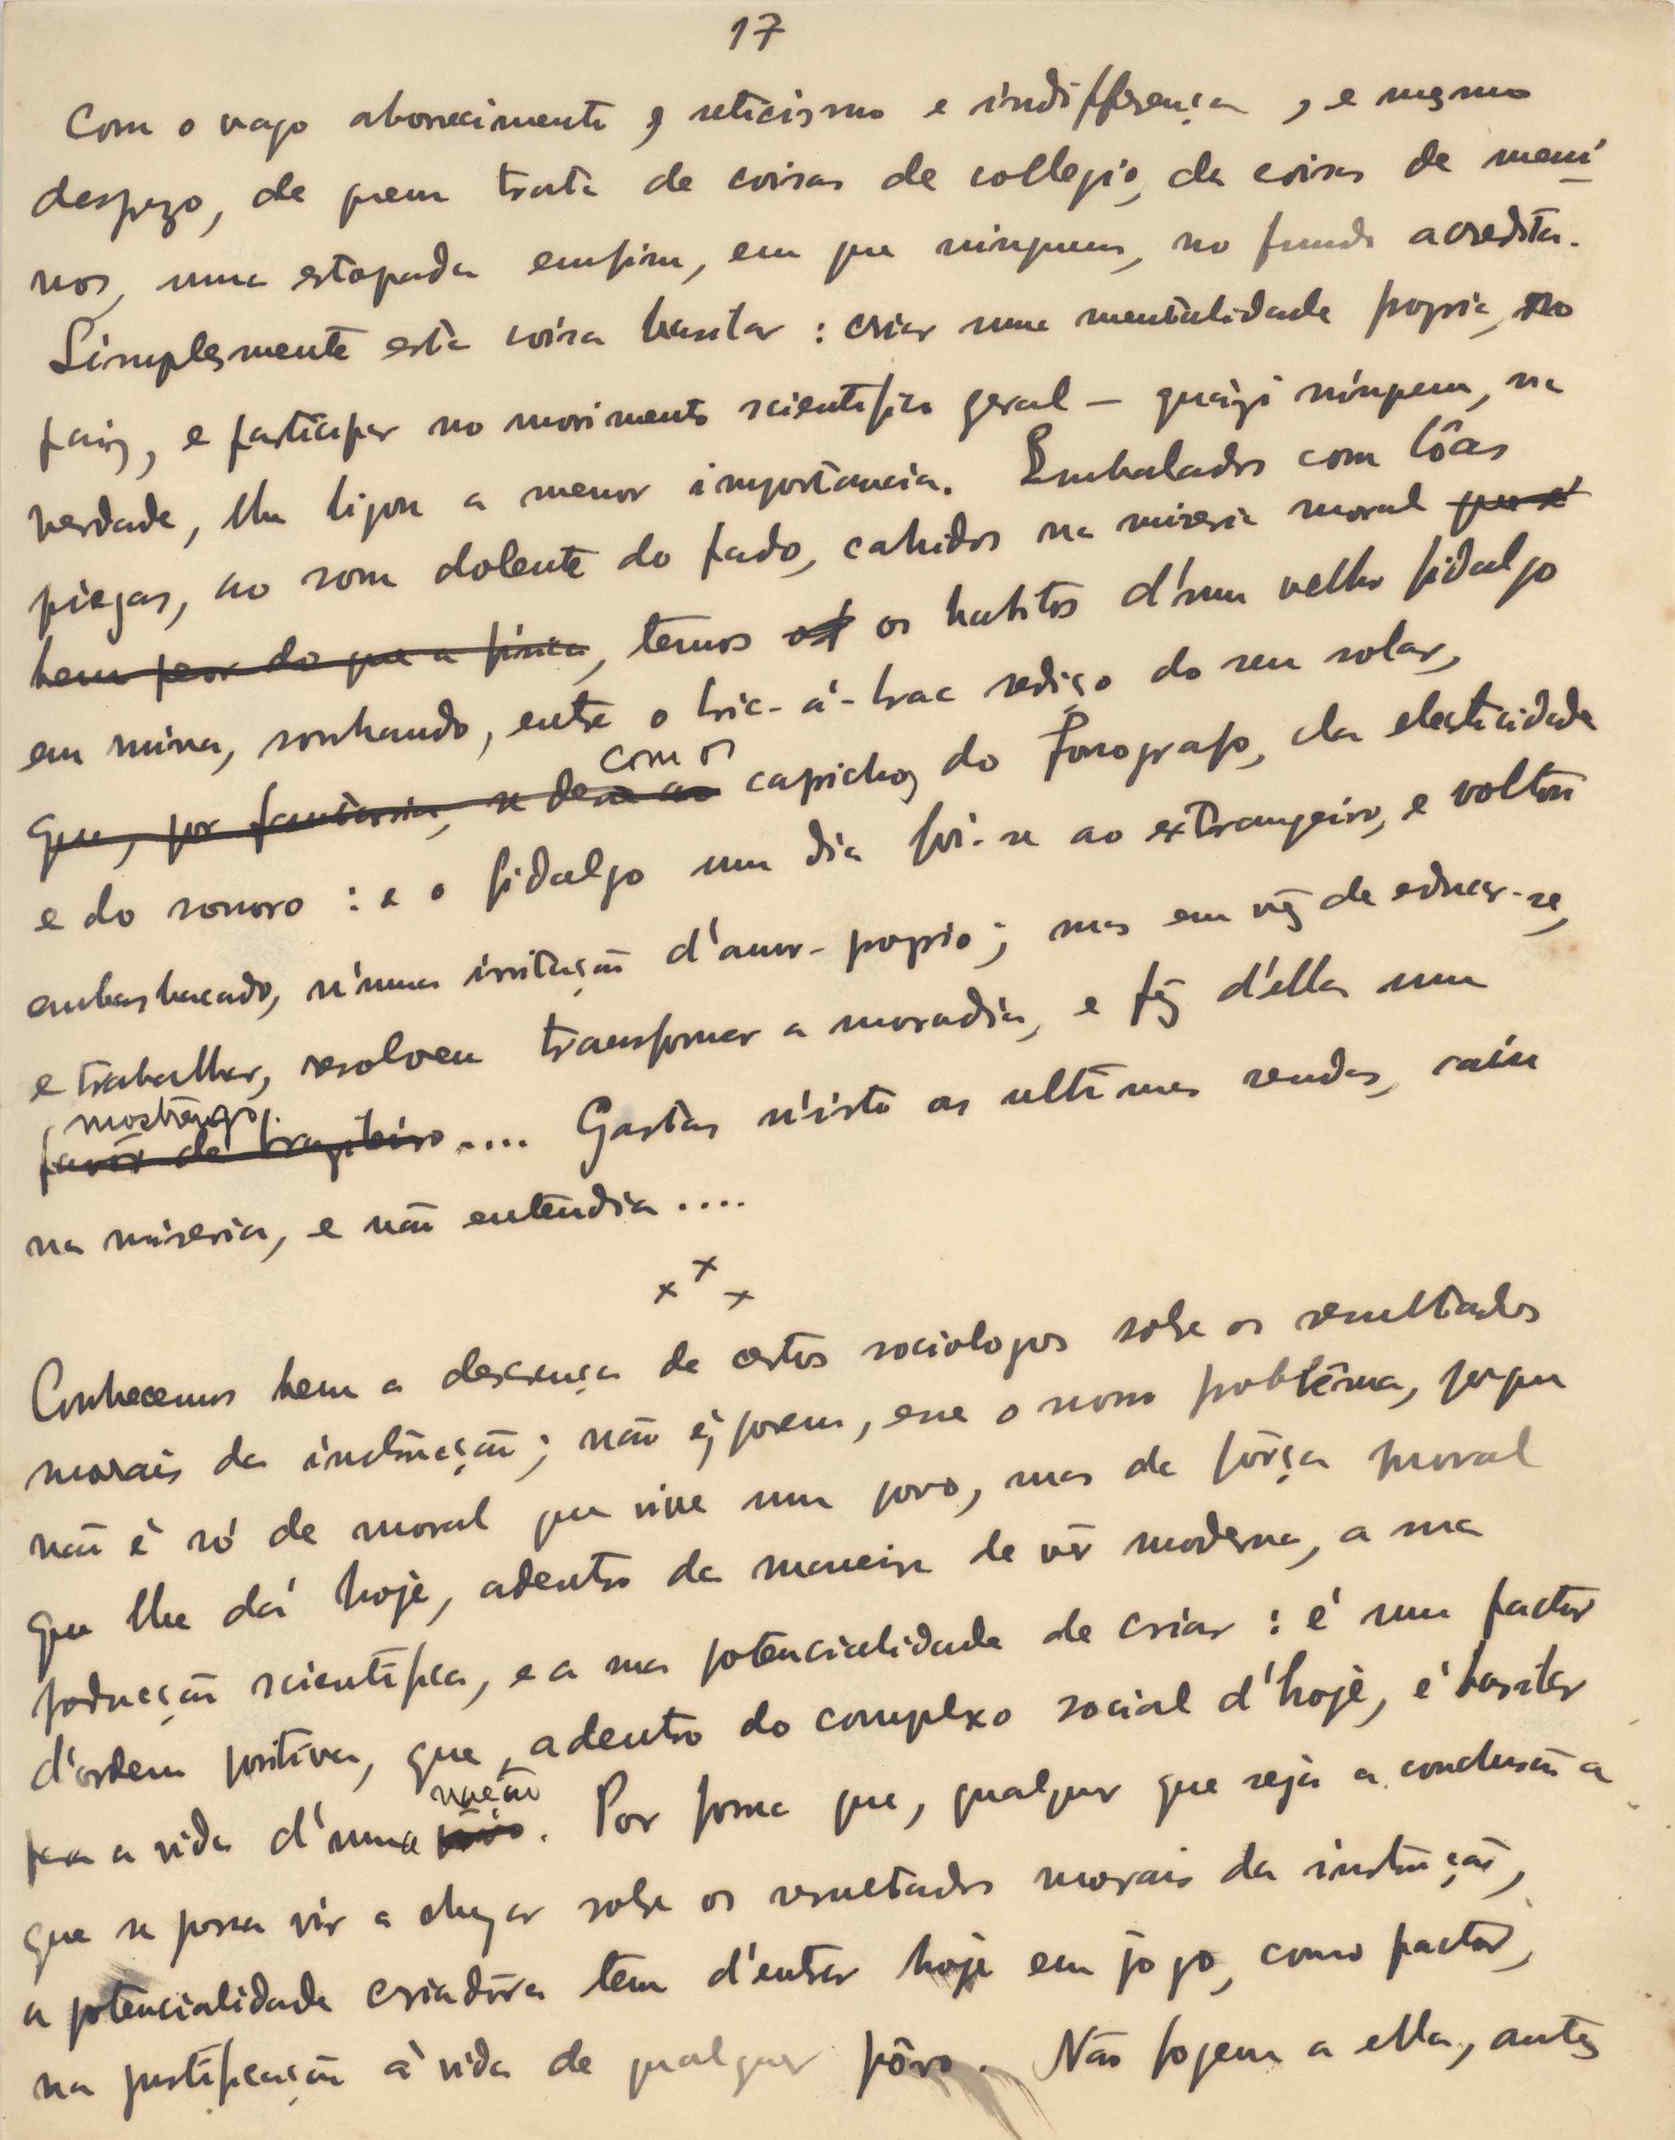 17
Com o vago aborrecimento, scticismo e indifferença, e mesmo
desprezo, de quem trata de coisas de collegio, de coisas de meni
nos, uma estopada emfim, em que ninguem, no fundo acredita.
Simplesmente esta coisa basilar: criar uma mentalidade propria, no
paiz, e participar no movimento scientifico geral — quázi ninguem, na
verdade, lhe ligou a menor importancia. Embalados com lôas
piegas, ao som dolente do fado, cahidos na miseria moral que é
bem peor do que a física, temos os habitos d'um velho fidalgo
em ruina, sonhando, entre o bric-á-brac rediço do seu solar,
com os
que, por fantasia, se dera ao caprichos do fonografo, da electricidade
e do sonoro: e o fidalgo um dia foi-se ao extrangeiro, e voltou
embasbacado, n'uma irritação d'amor-proprio; mas em vez de educar-se,
e trabalhar, resolveu transformar a moradia, e fez d'ella um
mostrengo
de brazileiro .... Gastas n'isto as ultimas rendas, caíu
na miseria, e não entendia ....
x x x
Conhecemos bem a descrença de certos sociologos sobre os resultados
morais da instrucção; não é, porem, esse o nosso problêma, porque
não é só de moral que vive um povo, mas da fôrça moral
que lhe dá hoje, adentro da maneira de vêr moderna, a sua
producção scientifica, e a sua potencialidade de criar: é um factor
d'ordem positiva, que, adentro do complexo social d'hoje, é basilar
nação
para a vida d'uma povo. Por forma que, qualquer que seja a conclusão a
que se possa vir a chegar sobre os resultados morais da instrucção,
a potencialidade criadôra tem d'entrar hoje em jogo, como factor,
na justificação á vida de qualquer pôvo. Não fogem a ella, antes